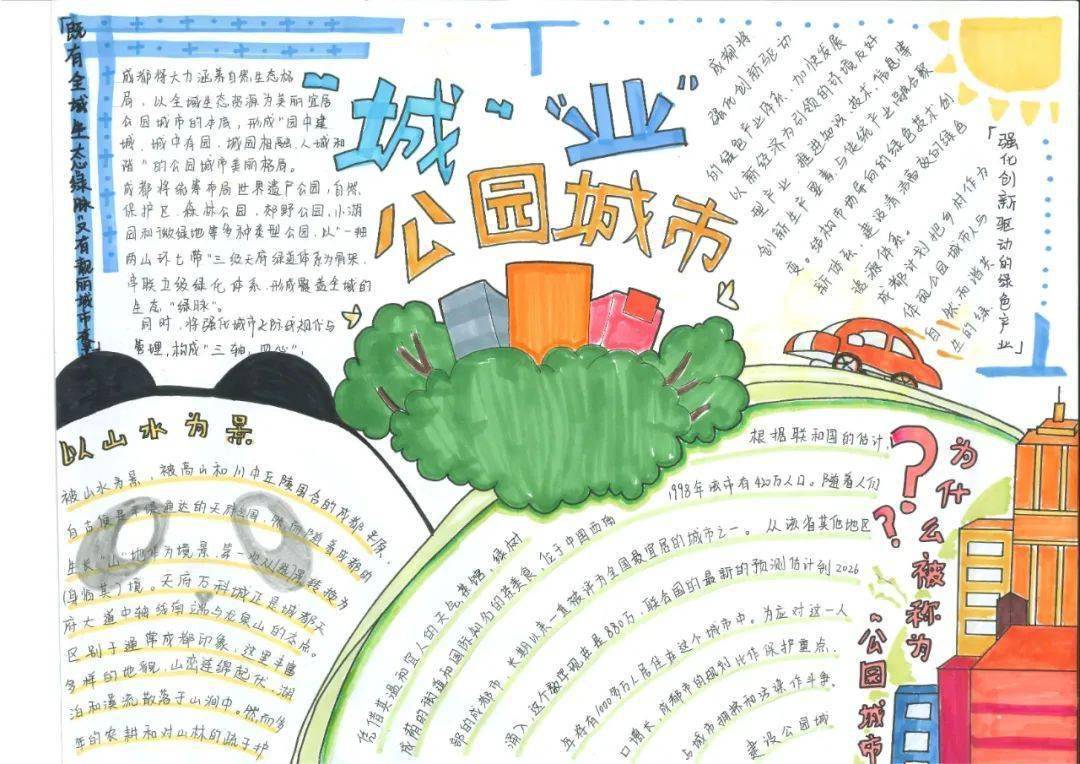 「既有全域生态绿脉"又有靓丽城市
成都将大力涵养自然生态格
局，以全域生态资源为美丽宜居
公园城市的本底，形成"园中建
城、城中有园、城园相融、人城和
谐"的公园城市美丽格局。
成都将统筹布局世界遗产公园、自然
保护区、森林公园、郊野公园、小游
园和微绿地等多种类型公园，以"一轴
两山环七带"三级天府绿道体系为骨架，
串联五级绿化体系，形成覆盖全域的
生态"绿脉"。
同时，将强化城市之际线规
管理，构成"三轴、四心"，
"城""业"
公园城市
成都将
强化创新驱动
的绿色产业体系，加快发展
以新经济为引领的环境友好
型产业，推进知识、技术、信息等
创新生产要素与传统产业融合聚
变。结构市场导向的绿色技术创
新体系，建设清洁高效的绿色
体系。
成都计划把乡村作为
体现公园城市人与
自然和
生的绿
「强化创新驱动的绿色产业」
以山水为景
被山水为景，被高山和川中丘陵围合的成都平原，
自古便是
生长"山"地作为境景，第一次从
(身临其)境。天府万科城正是城都天
府大道中轴线南端与龙泉山的
区别于通常成都印象，这里丰富
多样的地貌，山峦连绵起伏，湖
泊和溪流散落于山涧中。然而多
年的农耕和对山林的疏于护
为什么被称为
~公园城市
根据联和国的估计，
1998年该市有420万人口。随着人们
从该省其他地区
涌入，这个数字现在是880万，联合国的最新的预测估计到2026
年存有1000多万人居住在这个城市中。为应对这一人
口增长，成都市的规划
与城市拥挤和污染作斗争。
建设公园城
凭借其温和宜人的天气、茶馆、绿树
成荫的街道和国际知名的美食，位于中国西南
部的成都市，长期以来一直被评为全国最宜居的城市之一。